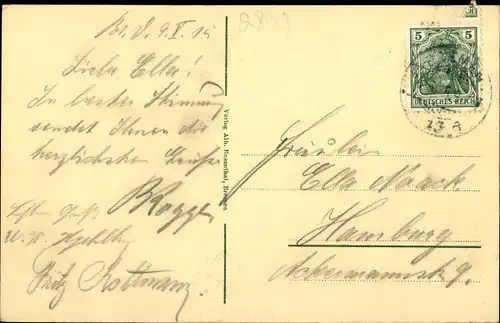 Liebe Ella!
In bester Stimmung
sendet Ihnen die
herzlichsten Grüße
Rogge
Fritz Kottmann
Verlag Alb. Rosenthal, Bremen
5 5
DEUTSCHES REICH
Fräulein
Ella Noack
Hamburg
Ackermannstr. 9.